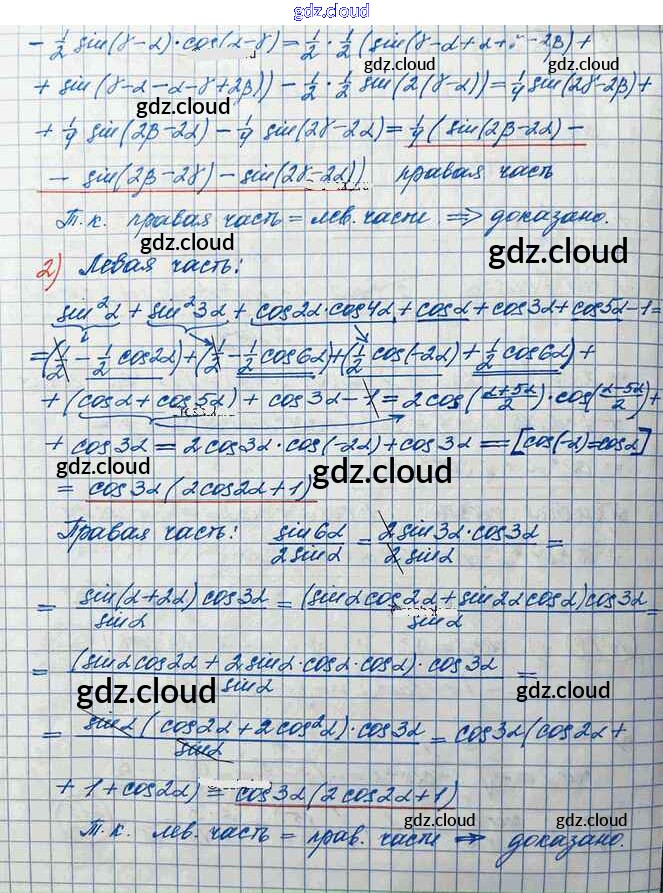 gdz.cloud
- 1/2 sin(γ-α)·cos(α-γ) = 1/2 · 1/2 (sin(γ-α+α+γ-2β) +
+ sin(γ-α-α-γ+2β)) - 1/2 · 1/2 sin(2(γ-α)) = 1/4 sin(2γ-2β) +
gdz.cloud gdz.cloud
+ 1/4 sin(2β-2α) - 1/4 sin(2γ-2α) = 1/4 (sin(2β-2α) -
- sin(2β-2γ) - sin(2γ-2α)) правая часть
gdz.cloud
Т.к. правая часть = лев. части ⇒ доказано.
gdz.cloud gdz.cloud
2) Левая часть:
sin²α + sin²3α + cos2α·cos4α + cosα + cos3α + cos5α - 1 =
= (1/2 - 1/2 cos2α) + (1/2 - 1/2 cos6α) + (1/2 cos(-2α) + 1/2 cos6α) +
+ (cosα + cos5α) + cos3α - 1 = 2cos((α+5α)/2)·cos((α-5α)/2) +
+ cos3α = 2cos3α·cos(-2α) + cos3α = [cos(-α)=cosα]
gdz.cloud gdz.cloud
= cos3α(2cos2α+1)
Правая часть: sin6α/2sinα = 2sin3α·cos3α/2sinα =
gdz.cloud
= sin(α+2α)cos3α/sinα = (sinαcos2α+sin2αcosα)cos3α/sinα =
gdz.cloud
= (sinαcos2α + 2sinα·cosα·cosα)·cos3α/sinα =
gdz.cloud gdz.cloud
= sinα(cos2α+2cos²α)·cos3α/sinα = cos3α(cos2α +
+ 1 + cos2α) = cos3α(2cos2α+1)
gdz.cloud gdz.cloud
Т.к. лев. часть = прав. части ⇒ доказано.
gdz.cloud gdz.cloud